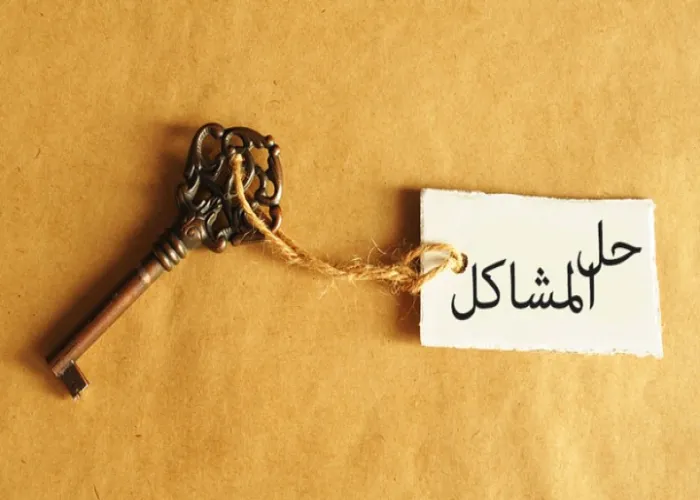 حل
المشاكل